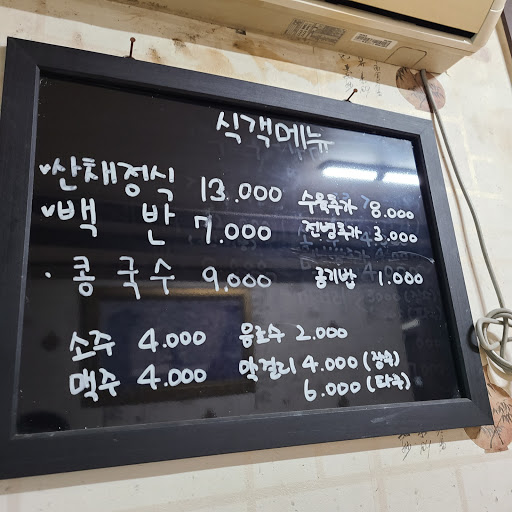 식객메뉴
산채정식 13.000 수육추가 8.000
백 반 7.000 전병추가 3.000
콩국수 9,000 공기밥 1.000
소주 4.000 음료수 2.000
맥주 4.000 막걸리 4.000 (장수)
6.000